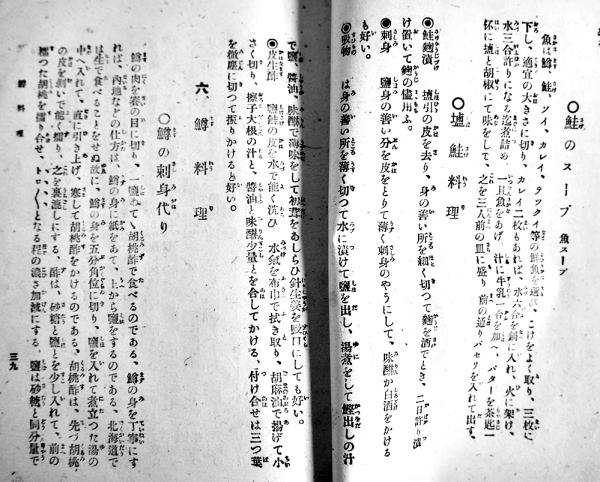 ◎鮭のスープ 魚スープ
魚は鱒、鮭、ソイ、カレイ、テックイ等の鮮魚を選び、こけをよく取り、三枚に
下し、適宜の大きさに切り、カレイ二枚もあれば、水六合を鍋に入れ、火に架け、
水三合許りになる迄煮詰め、一旦魚をあげ、汁に牛乳一合を加へ、バターを茶匙一
杯に塩と胡椒にて味をして、之を三人前の皿に盛り、前の通りパセリを入れて出す、
◎塩鮭料理
◉鮭麹漬 塩引の皮を去り、身の善い所を細く切つて麹を酒でとき、二日許り漬
け置いて麹の儘用ふ。
◉刺身 塩引の善い分を皮をとりて薄く刺身のやうにして、味醂か白酒をかける
も好い。
◉吸物 は身の善い所を薄く切つて水に漬けて鹽を出し、湯煮をして鰹出しの汁
で鹽、醤油、味醂で薄味をして初茸をあしらひ針生姜を吸口にしても好い。
◉皮生酢 鹽鮭の皮を水で能く洗ひ 水氣を布巾で拭き取り、胡麻油で揚げて小
さく切り、擦り大根の汁と、醤油と味醂少量とを合してかける、付け合せは三つ葉
を微塵に切つて振りかけると好い。
六、鱒料理
◎鱒の刺身代り
鱒の肉を賽の目に切り、一鹽あて、胡桃酢で食べるのである、鱒の身を丁寧にす
れば、内地などの仕方は、鱒の身に紙をあて、上から鹽をするのである、北海道で
は生で食べることをせぬ故に、鱒の身を五分角位に切り、鹽を入れて煮立つた湯の
中へ入れて、直に引き上げ、寒して胡桃酢をかけるのである、胡桃酢は、先づ胡桃
の皮を剥いで能く擂り、之を裏漉しにする、酢は、砂糖と鹽とを少し入れて、前の
擂つた胡桃を擂り合せ、トロ〳〵となる程の濃さ加減にする、鹽は砂糖と同分量で
鱒料理
三九